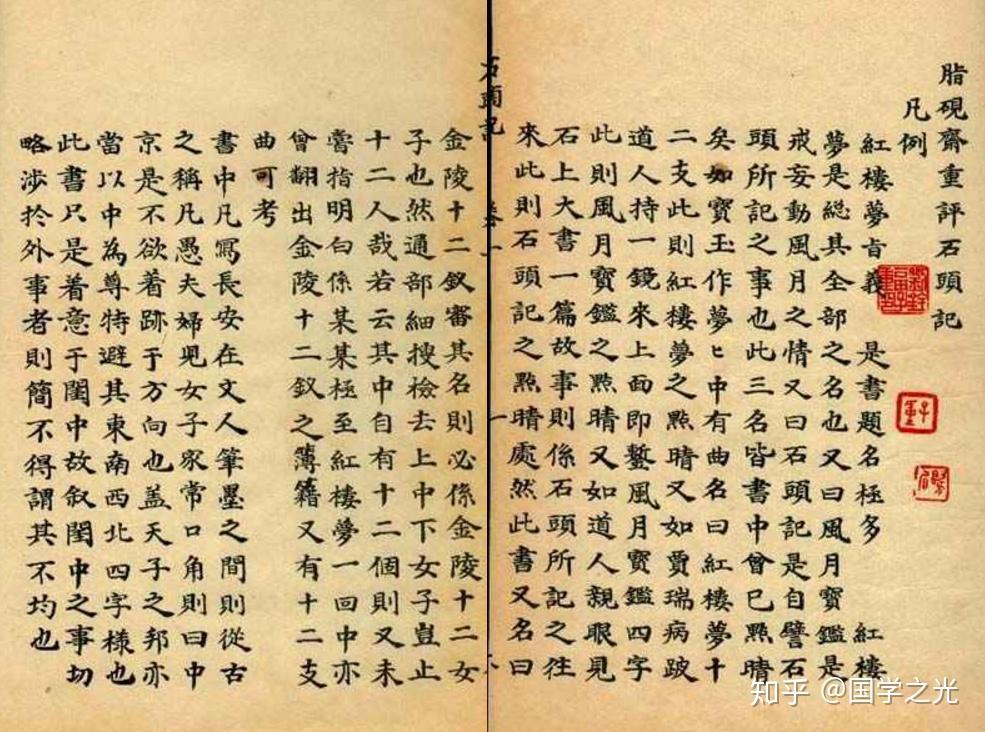 脂硯齋重評石頭記
凡例
紅樓夢旨義 是書題名極多 紅樓
夢是総其全部之名也又曰風月寶鑑是
戒妄動風月之情又曰石頭記是自譬石
頭所記之事也此三名皆書中曾已㸃睛
矣如寶玉作夢〻中有曲名曰紅樓夢十
二支此則紅樓夢之㸃睛又如賈瑞病跛
道人持一鏡來上面即鏨風月寳鑑四字
此則風月寳鑑之㸃睛又如道人親眼見
石上大書一篇故事則係石頭所記之往
來此則石頭記之㸃睛處然此書又名曰
石頭記 卷一 一
金陵十二釵審其名則必係金陵十二女
子也然通部細搜檢去上中下女子豈止
十二人哉若云其中自有十二個則又未
嘗指明白係某某極至紅樓夢一回中亦
曾翻出金陵十二釵之簿籍又有十二支
曲可考
書中凡寫長安在文人筆墨之間則從古
之稱凡愚夫婦児女子家常口角則曰中
京是不欲着跡于方向也盖天子之邦亦
當以中為尊特避其東南西北四字樣也
此書只是着意于閨中故叙閨中之事切
略涉於外事者則簡不得謂其不均也
知乎 @国学之光